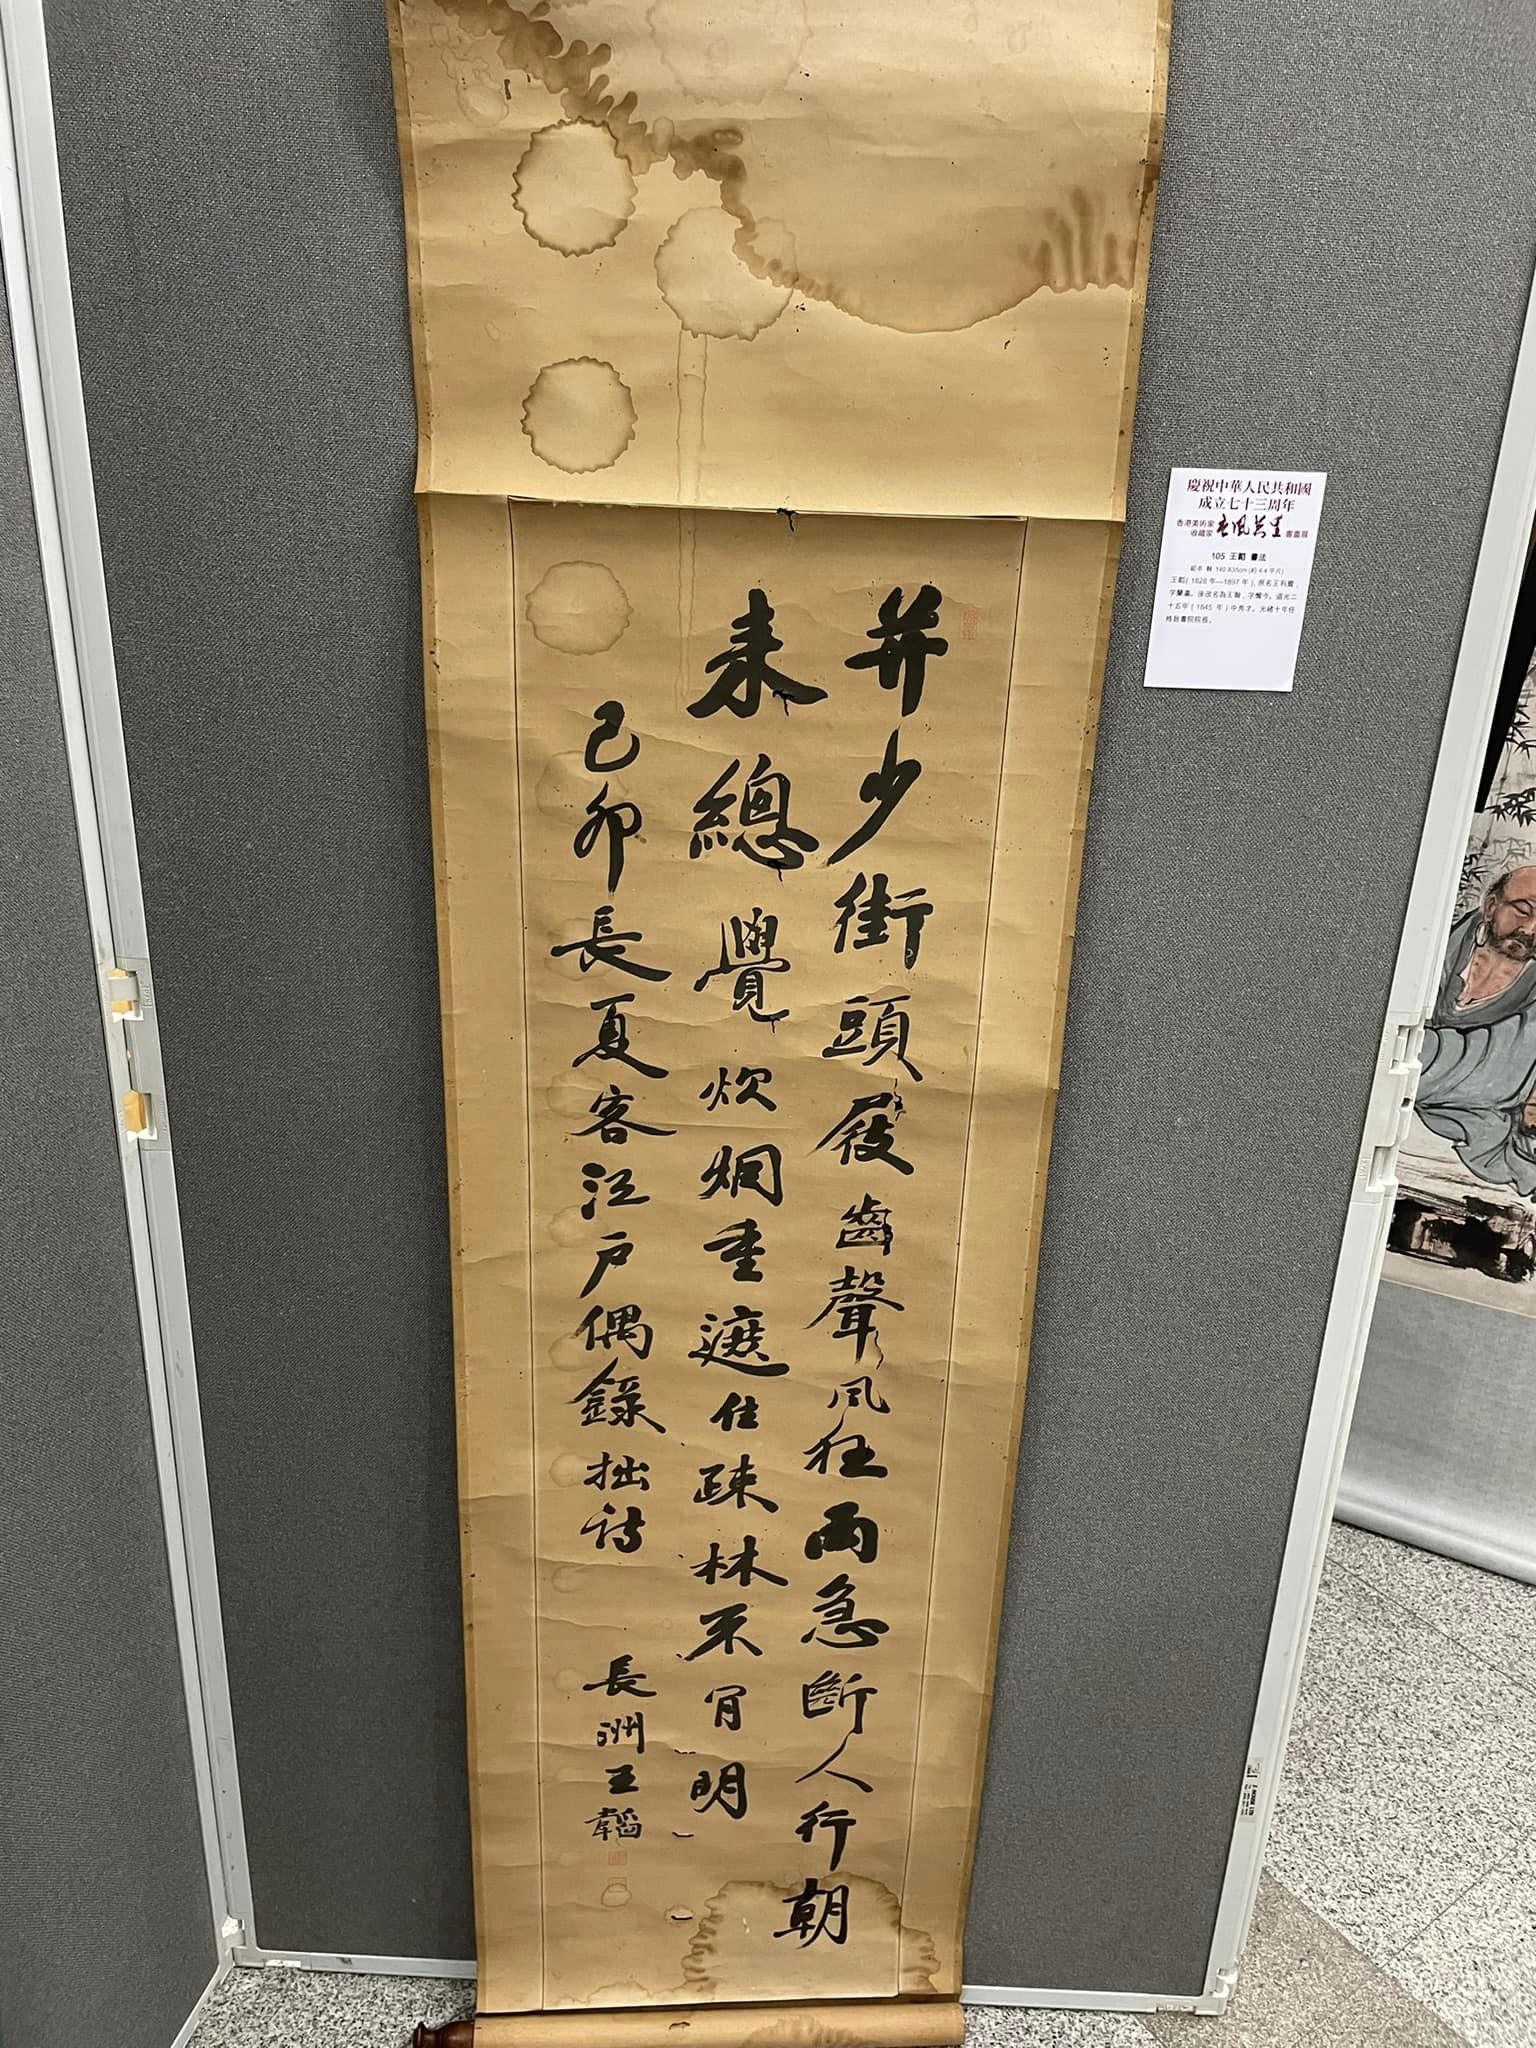 并少街頭屐齒聲風狂雨急斷人行朝
来總覺炊烟重遮住疎林不肎明
己卯長夏客江戶偶錄拙詩
長洲王韜
慶祝中華人民共和國
成立七十三周年
香港美術家
收藏家
書畫展
105 王韜 書法
紙本 軸 140 X35cm (約 4.4 平尺)
王韜( 1828 年—1897 年), 原名王利賓,
字蘭瀛。後改名為王瀚, 字懶今。道光二
十五年 ( 1845 年 ) 中秀才。光緒十年任
格致書院院長。